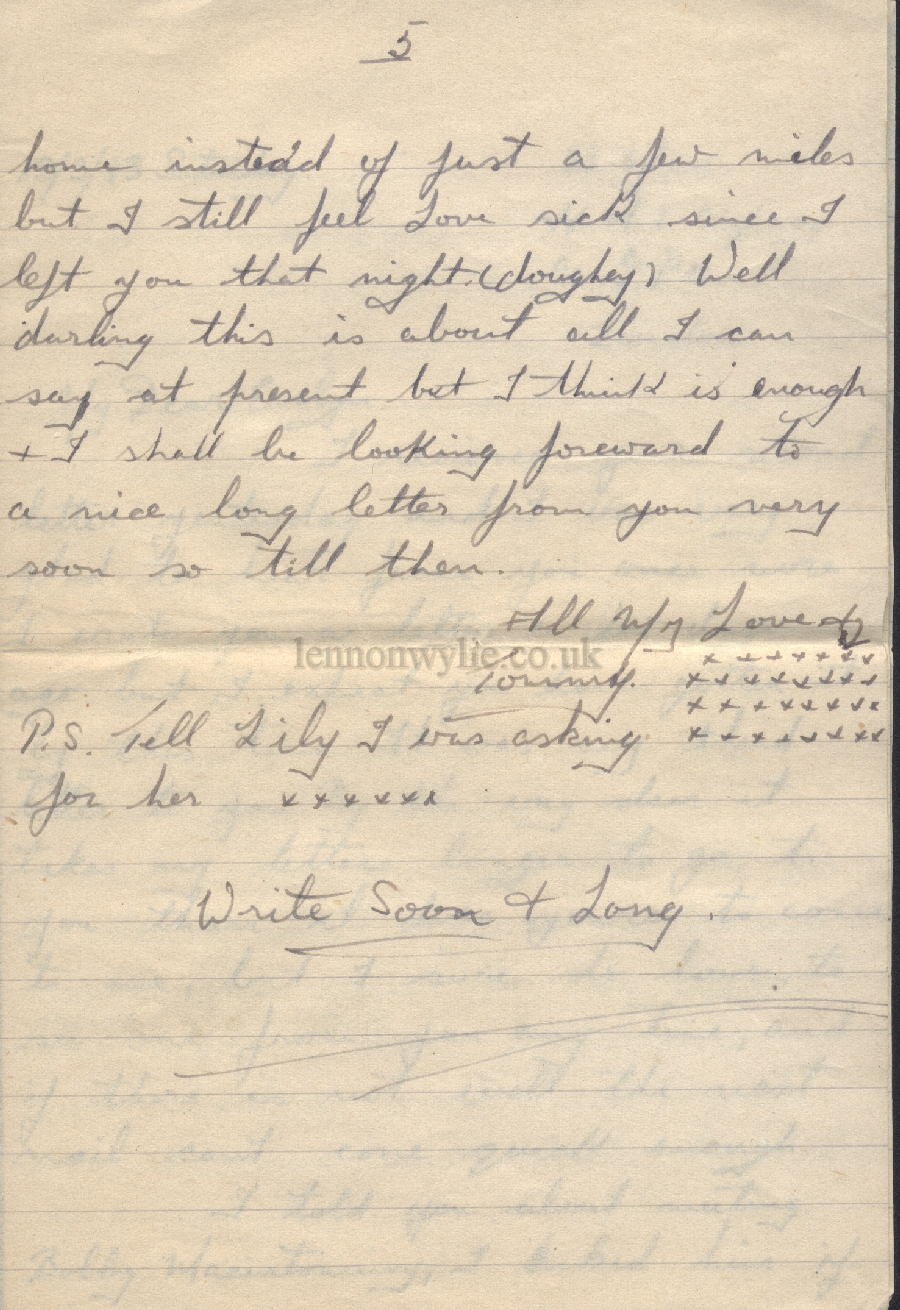 5
home instead of just a few miles
but I still feel Love sick since I
left you that night. (doughey) Well
darling this is about all I can
say at present but I think is enough
+ I shall be looking foreward to
a nice long letter from you very
soon so till then.
All My Love
lennonwylie.co.uk
Tommy.
x x x x x x x
x x x x x x x x
x x x x x x x x
P.S. Tell Lily I was asking
x x x x x x x x
for her x x x x x x
Write Soon & Long.